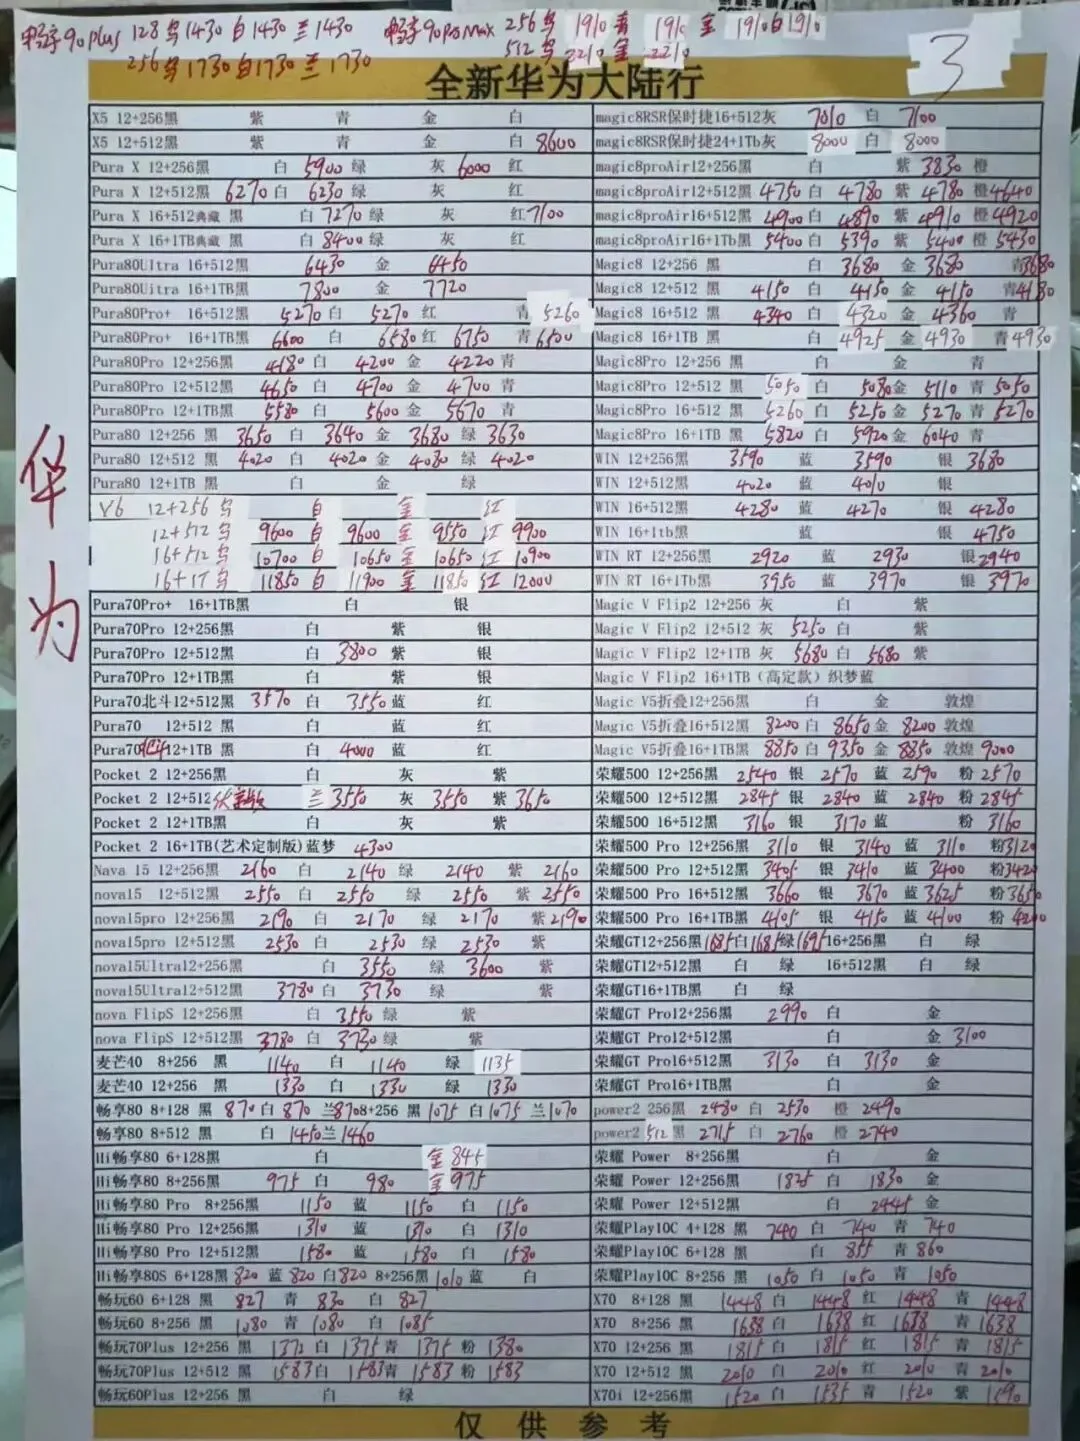 畅享90plus 128 黑1430 白1430 兰1430
256黑1730白1730兰1730
畅享90ProMax 256黑 1910 青 1910 金 1910白1910
512黑 2210 金 2210
3
全新华为大陆行
华为
X5 12+256黑 紫 青 金 白
X5 12+512黑 紫 青 金 白 8600
Pura X 12+256黑 白 5900 绿 灰 6000 红
Pura X 12+512黑 6270 白 6230 绿 灰 红
Pura X 16+512典藏 黑 白 7270 绿 灰 红7100
Pura X 16+1TB典藏 黑 白 8400 绿 灰 红
Pura80Ultra 16+512黑 6430 金 6450
Pura80Uitra 16+1TB黑 7800 金 7720
Pura80Pro+ 16+512黑 5270 白 5270 红 青 5260
Pura80Pro+ 16+1TB黑 6600 白 6580 红 6750 青 6500
Pura80Pro 12+256黑 4180 白 4200 金 4220 青
Pura80Pro 12+512黑 4650 白 4700 金 4700 青
Pura80Pro 12+1TB黑 5580 白 5600 金 5670 青
Pura80 12+256 黑 3650 白 3640 金 3680 绿 3630
Pura80 12+512 黑 4020 白 4020 金 4030 绿 4020
Pura80 12+1TB 黑 白 金 绿
V6 12+256 黑 白 金 红
12+512 黑 9600 白 9600 金 9550 红 9900
16+512 黑 10700 白 10650 金 10650 红 10900
16+1T 黑 11850 白 11900 金 11850 红 12000
Pura70Pro+ 16+1TB黑 白 银
Pura70Pro 12+256黑 白 紫 银
Pura70Pro 12+512黑 白 3800 紫 银
Pura70Pro 12+1TB黑 白 紫 银
Pura70北斗12+512黑 3570 白 3550 蓝 红
Pura70 12+512 黑 白 蓝 红
Pura70北斗12+1TB 黑 白 4000 蓝 红
Pocket 2 12+256黑 白 灰 紫
Pocket 2 12+512 兰 3550 灰 3550 紫 3650
Pocket 2 12+1TB黑 白 灰 紫
Pocket 2 16+1TB(艺术定制版)蓝梦 4300
Nava 15 12+256黑 2160 白 2140 绿 2140 紫 2160
nova15 12+512黑 2550 白 2550 绿 2550 紫 2550
nova15pro 12+256黑 2190 白 2170 绿 2170 紫 2190
nova15pro 12+512黑 2530 白 2530 绿 2530 紫
nova15Ultra12+256黑 白 3550 绿 3600 紫
nova15Ultra12+512黑 3780 白 3730 绿 紫
nova FlipS 12+256黑 白 3550 绿 紫
nova FlipS 12+512黑 3780 白 3730 绿 紫
麦芒40 8+256 黑 1140 白 1140 绿 1135
麦芒40 12+256 黑 1330 白 1330 绿 1330
畅享80 8+128 黑 870 白 870 兰870 8+256 黑 1075 白 1075 兰 1070
畅享80 8+512 黑 白 1450 兰 1460
Hi畅享80 6+128黑 白 金 845
Hi畅享80 8+256黑 975 白 980 金 975
Hi畅享80 Pro 8+256黑 1150 蓝 1150 白 1150
Hi畅享80 Pro 12+256黑 1310 蓝 1310 白 1310
Hi畅享80 Pro 12+512黑 1580 蓝 1580 白 1580
Hi畅享80S 6+128黑 820 蓝 820 白820 8+256黑 1010 蓝 白
畅玩60 6+128 黑 827 青 830 白 827
畅玩60 8+256 黑 1080 青 1080 白 1085
畅玩70Plus 12+256 黑 1372 白 1375 青 1375 粉 1380
畅玩70Plus 12+512 黑 1583 白 1583 青 1583 粉 1583
畅玩60Plus 12+256 黑 白 绿
magic8RSR保时捷16+512灰 7010 白 7100
magic8RSR保时捷24+1Tb灰 8000 白 8000
magic8proAir12+256黑 白 紫 3830 橙
magic8proAir12+512黑 4750 白 4780 紫 4780 橙4640
magic8proAir16+512黑 4900 白 4890 紫 4910 橙 4920
magic8proAir16+1Tb黑 5400 白 5390 紫 5400 橙 5430
Magic8 12+256 黑 白 3680 金 3680 青3680
Magic8 12+512 黑 4150 白 4150 金 4150 青4180
Magic8 16+512 黑 4340 白 4320 金 4360 青
Magic8 16+1TB 黑 白 4925 金 4930 青 4930
Magic8Pro 12+256 黑 白 金 青
Magic8Pro 12+512 黑 5050 白 5080 金 5110 青 5050
Magic8Pro 16+512 黑 5260 白 5250 金 5270 青 5270
Magic8Pro 16+1TB 黑 5820 白 5920 金 6040 青
WIN 12+256黑 3590 蓝 3590 银 3680
WIN 12+512黑 4020 蓝 4010 银
WIN 16+512黑 4280 蓝 4270 银 4280
WIN 16+1tb黑 蓝 银 4750
WIN RT 12+256黑 2920 蓝 2930 银2940
WIN RT 16+1Tb黑 3950 蓝 3970 银 3970
Magic V Flip2 12+256 灰 白 紫
Magic V Flip2 12+512 灰 5250 白 紫
Magic V Flip2 12+1TB 灰 5680 白 5680 紫
Magic V Flip2 16+1TB（高定款）织梦蓝
Magic V5折叠12+256黑 白 金 敦煌
Magic V5折叠16+512黑 8200 白 8650 金 8200 敦煌
Magic V5折叠16+1TB黑 8850 白 9350 金 8850 敦煌 9000
荣耀500 12+256黑 2540 银 2570 蓝 2590 粉 2570
荣耀500 12+512黑 2845 银 2840 蓝 2840 粉 2845
荣耀500 16+512黑 3160 银 3170 蓝 粉 3160
荣耀500 Pro 12+256黑 3110 银 3140 蓝 3110 粉3120
荣耀500 Pro 12+512黑 3405 银 3410 蓝 3400 粉3420
荣耀500 Pro 16+512黑 3660 银 3670 蓝 3625 粉 3650
荣耀500 Pro 16+1TB黑 4105 银 4150 蓝 4100 粉 4200
荣耀GT12+256黑 1685 白 1685 绿 1695 16+256黑 白 绿
荣耀GT12+512黑 白 绿 16+512黑 白 绿
荣耀GT16+1TB黑 白 绿
荣耀GT Pro12+256黑 2990 白 金
荣耀GT Pro12+512黑 白 金 3100
荣耀GT Pro16+512黑 3130 白 3130 金
荣耀GT Pro16+1TB黑 白 金
power2 256黑 2480 白 2530 橙 2490
power2 512黑 2715 白 2760 橙 2740
荣耀 Power 8+256黑 白 金
荣耀 Power 12+256黑 1825 白 1830 金
荣耀 Power 12+512黑 白 2445 金
荣耀Play10C 4+128 黑 740 白 740 青 740
荣耀Play10C 6+128 黑 白 855 青 860
荣耀Play10C 8+256 黑 1050 白 1050 青 1050
X70 8+128 黑 1448 白 1448 红 1448 青 1448
X70 8+256 黑 1638 白 1638 红 1638 青 1638
X70 12+256 黑 1815 白 1815 红 1815 青 1815
X70 12+512 黑 2010 白 2010 红 2010 青 2010
X70i 12+256黑 1520 白 1535 青 1520 紫 1590
仅供参考